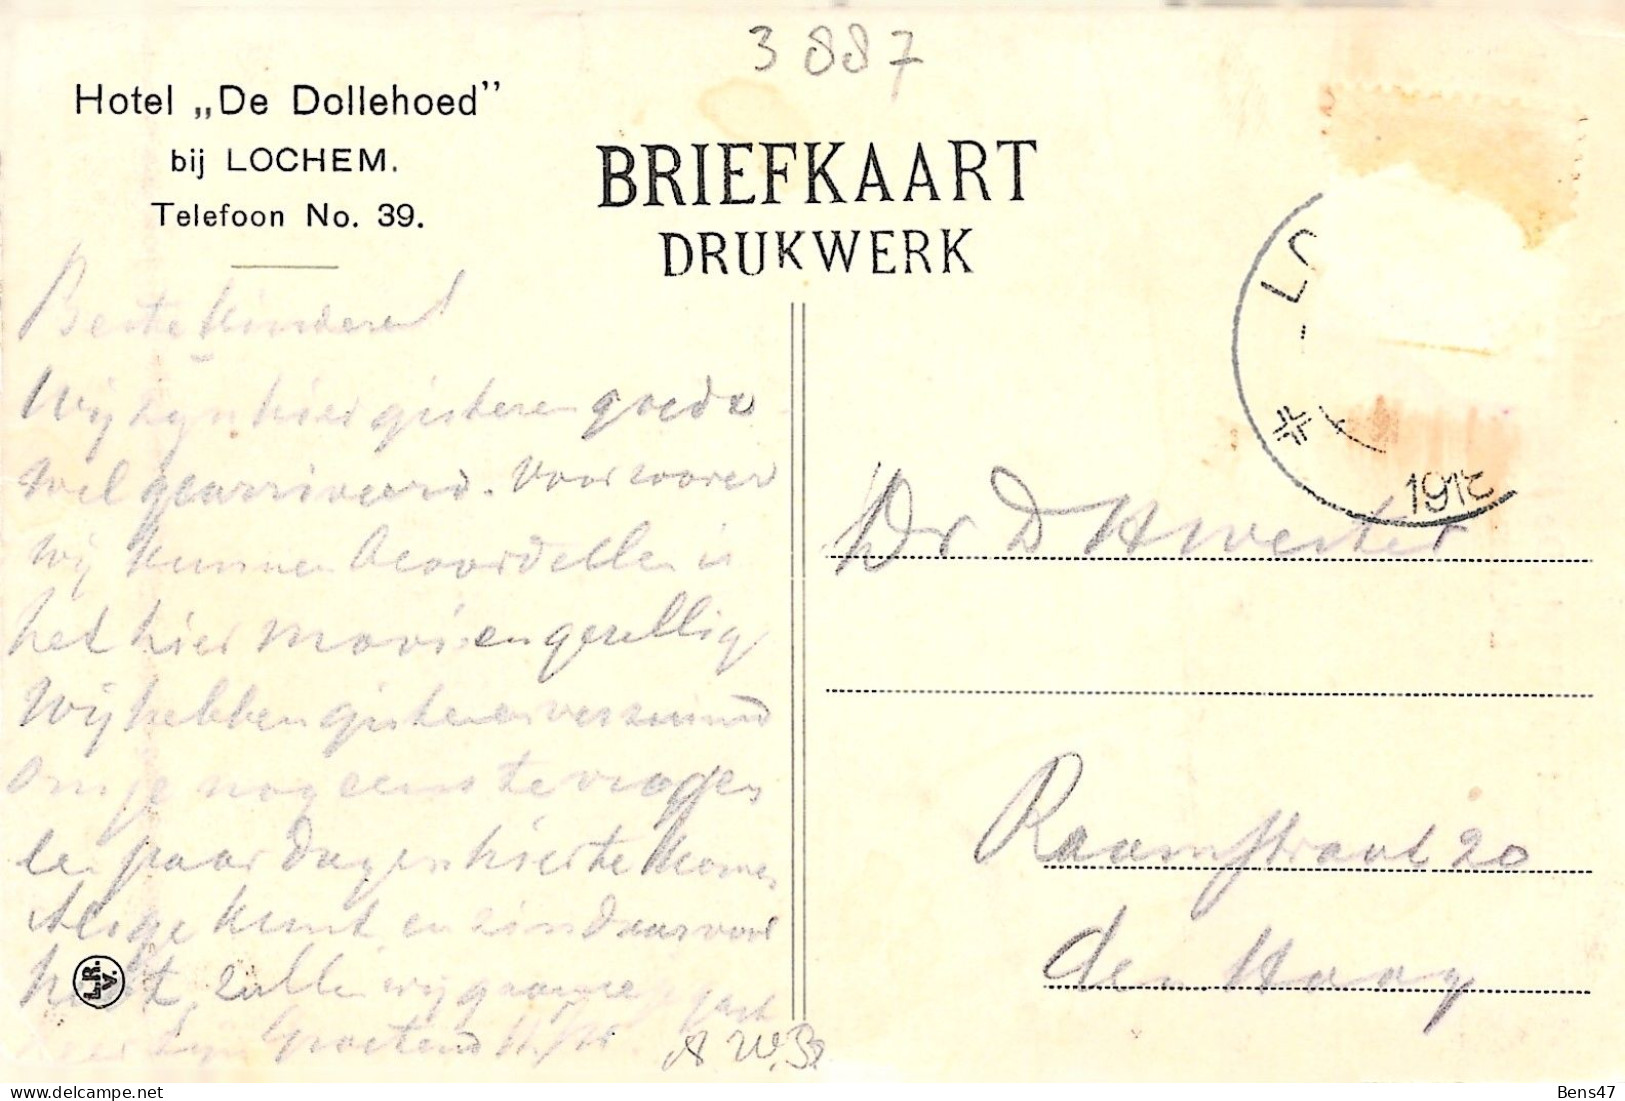 3887
Hotel „De Dollehoed”
bij LOCHEM.
Telefoon No. 39.
BRIEFKAART
DRUKWERK
LO
1912
Beste Kinderen
Wij zijn hier gisteren goed &
wel gearriveerd. Voor zoover
wij kunnen beoordeelen is
het hier mooi en gezellig
Wij hebben gisteren verzuimd
om je nog eens te vragen
een paar dagen hier te komen
Als je kunt en zin daarvoor
hebt, zullen wij gaarne
Groetend
Dr D H Wester
Raamstraat 20
den Haag
L.R.
V.
Bens47